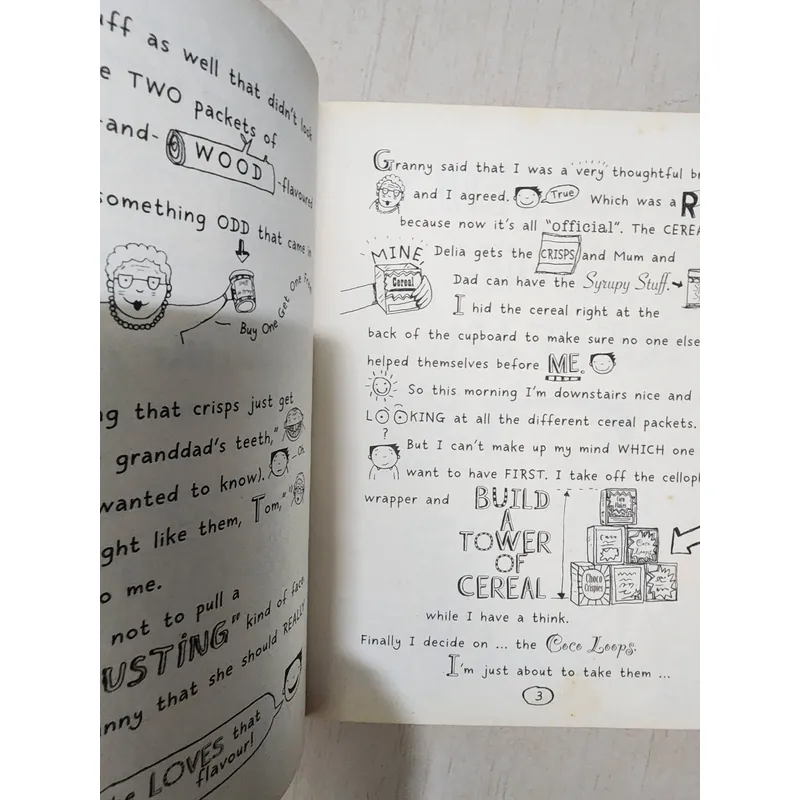 uff as well that didn't look
e TWO packets of
-and- WOOD -flavoured
something ODD that came in
Buy One Get One Free
ng that crisps just get
granddad's teeth,"
wanted to know). Oh.
ght like them, Tom,"
o me.
not to pull a
USTING" kind of face
nny that she should REALLY
LOVES that
flavour!
Granny said that I was a very thoughtful br
and I agreed. True Which was a R
because now it's all "official". The CEREA
MINE Delia gets the CRISPS and Mum and
Cereal Dad can have the Syrupy Stuff.
I hid the cereal right at the
back of the cupboard to make sure no one else
helped themselves before ME.
So this morning I'm downstairs nice and
LOOKING at all the different cereal packets.
?
But I can't make up my mind WHICH one
want to have FIRST. I take off the celloph
wrapper and BUILD
A
TOWER
OF
CEREAL
Coco Loops
Choco Crispies
while I have a think.
Finally I decide on ... the Coco Loops.
I'm just about to take them ...
3